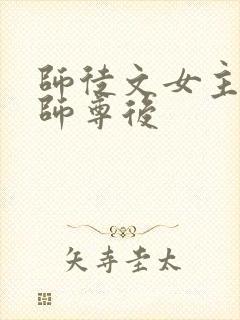 師徒文女主
師尊後
矢寺圭太